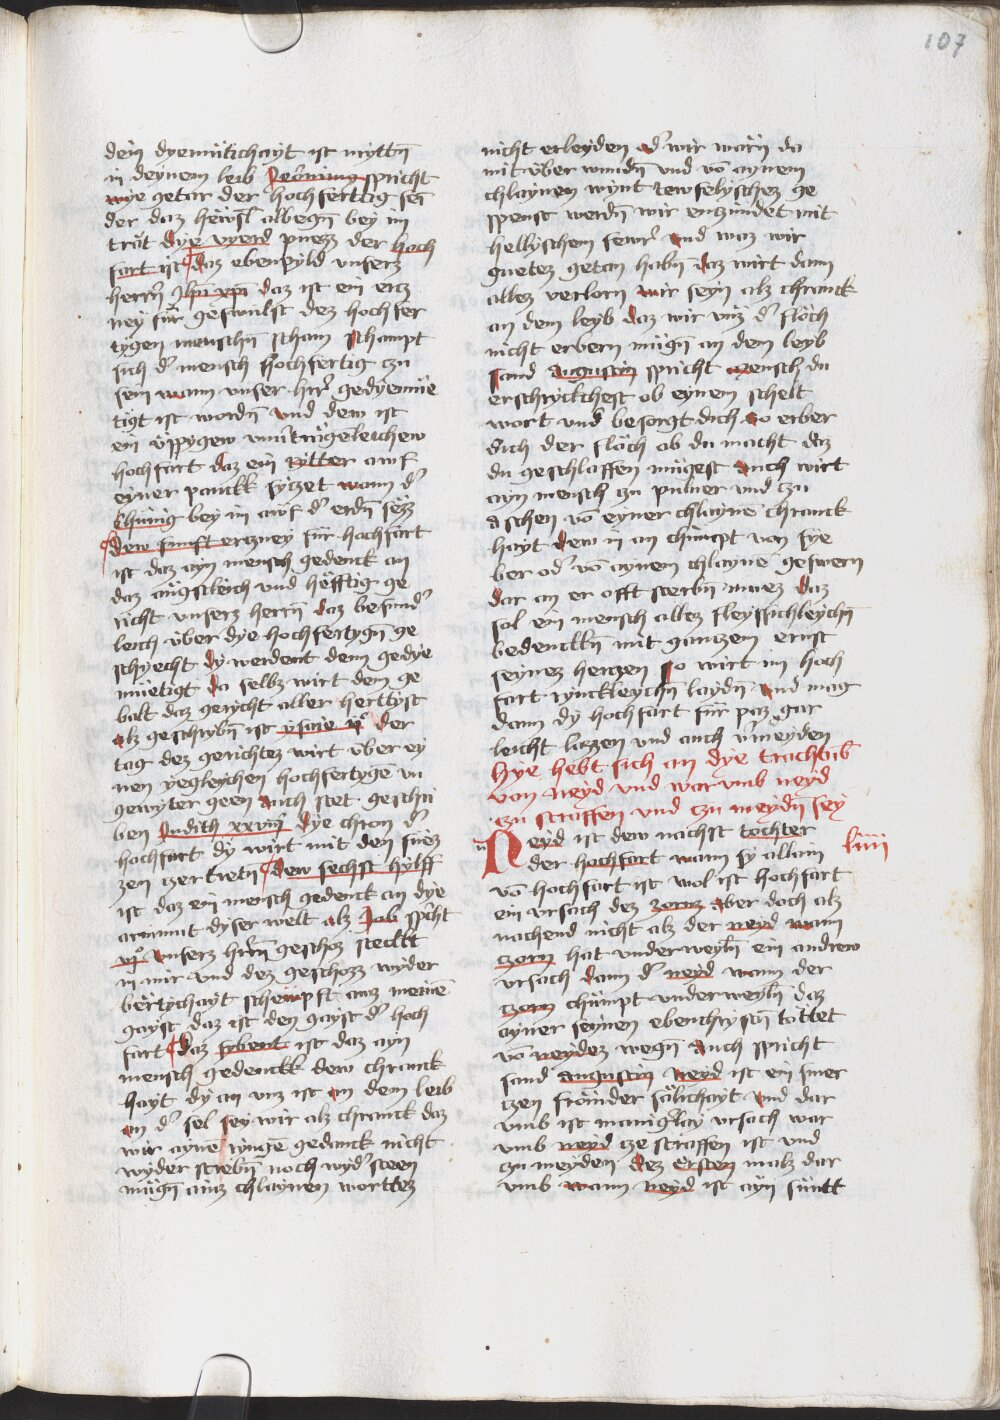 107
dein dyemütichayt ist myttn̄
in deynem leib Jeronimus spricht
wye getar der hochferttig sei
der daz hewsl̄ albegn̄ bey im
trät dye vyerd puezz der hoch
fart ist daz ebenpyld unsers
herrn̄ Jh̄u xp̄i daz ist ein ercz
ney für geswulst dez hochfer
tygen menschn̄ scham schampt
sich d' mensch hochfertig czu
sein wann unser hrr̄ gedyemüe
tigt ist wordn̄ und dem ist
ein üppygew
hochfart daz ein rytter awf
einer panckk syczet wann d'
Chünig bey im awf d' erdn̄ säzz
dew funft erczney für hochfart
ist daz ayn mensch gedenck an
daz angstleich und häfftig ge
richt unsers herrn̄ daz besund'
leich über dye hochfertygn̄ ge
schyecht dy werdent denn gedye
müetigt da selbs wirt dem ge
balt daz gerycht aller herttyst
alz geschrybn̄ ist ysaie ijo der
tag dez gerichtez wirt über ey
nen yegleychen hochfertygē un
gewyter geen auch stet geschri
ben Judith xxviij dye chron d'
hochfart dy wirt mit den füez
zen czertretn̄ dew sechst hylff
ist daz ein mensch gedenck an dye
armmut dyser welt alz Job sp̄cht
vjo unsers hrr̄n geschoz steckkt
in mir und dez geschozz wyder
bertychayt schempft auz meinē
gayst daz ist den gayst d' hoch
fart daz sybent ist daz ayn
mensch gedenckk dew chranck
hayt dy an unz ist an dem leib
an d' sel sey wir alz chranck daz
wir aynē ringē gedanck nicht
wyder strebn̄ noch wyd' steen
mügn̄ ainz chlaynen worttez
nicht erleyden d' wir warn̄ da
mit über wundn̄ und vō aynem
chlaynen wynt tewfelyschez ge
spenst werdn̄ wir enczündet mit
hellyschem fewr̄ und waz wir
guetez getan habn̄ daz wirt dann
allez verlorn wir seyn alz chranck
an dem leyb daz wir unz d' flöch
nicht erbern mügn̄ an dem leyb
sand augustin spricht mensch du
erschrykchest ob eynem schelt
wort und besorgt dich so erber
dich der flöch ob du macht daz
du geschlaffen mügest auch wirt
ayn mensch czu puluer und czu
aschen vō eyner chlaynē chranck
hayt dew in an chümpt von fye
ber od' vō aynem chlaynē geswern
dar an er offt sterbn̄ muez daz
sol ein mensch allez fleyssichleychn̄
bedenckn̄ mit ganczem ernst
seinez herczen so wirt im hoch
fart rynckleychn̄ laydn̄ und mag
dann dy hochfart für paz gar
leicht lazzen und auch v'meyden
Hye hebt sich an dye trachtūb
von neyd und warumb neyd
czu straffen und czu meydn̄ sey
Neyd ist dew nachst tochter
liiij
der hochfart wann sy allain
vō hochfart ist wol ist hochfart
ein ursach dez zorns aber doch alz
nachend nicht alz der neyd wann
czorn hat underweyln̄ ein andrew
ursach dann d' neyd wann der
czorn chümpt underweyln̄ daz
ayner seynen ebenchrystn̄ töttet
vō neydez wegn̄ Auch spricht
sand augustin Neyd ist ein smer
czen främder sälichayt und dar
umb ist manigslay ursach war
umb neyd cze straffen ist und
czu meyden dez Ersten malz dar
umb wann neyd ist ayn süntt